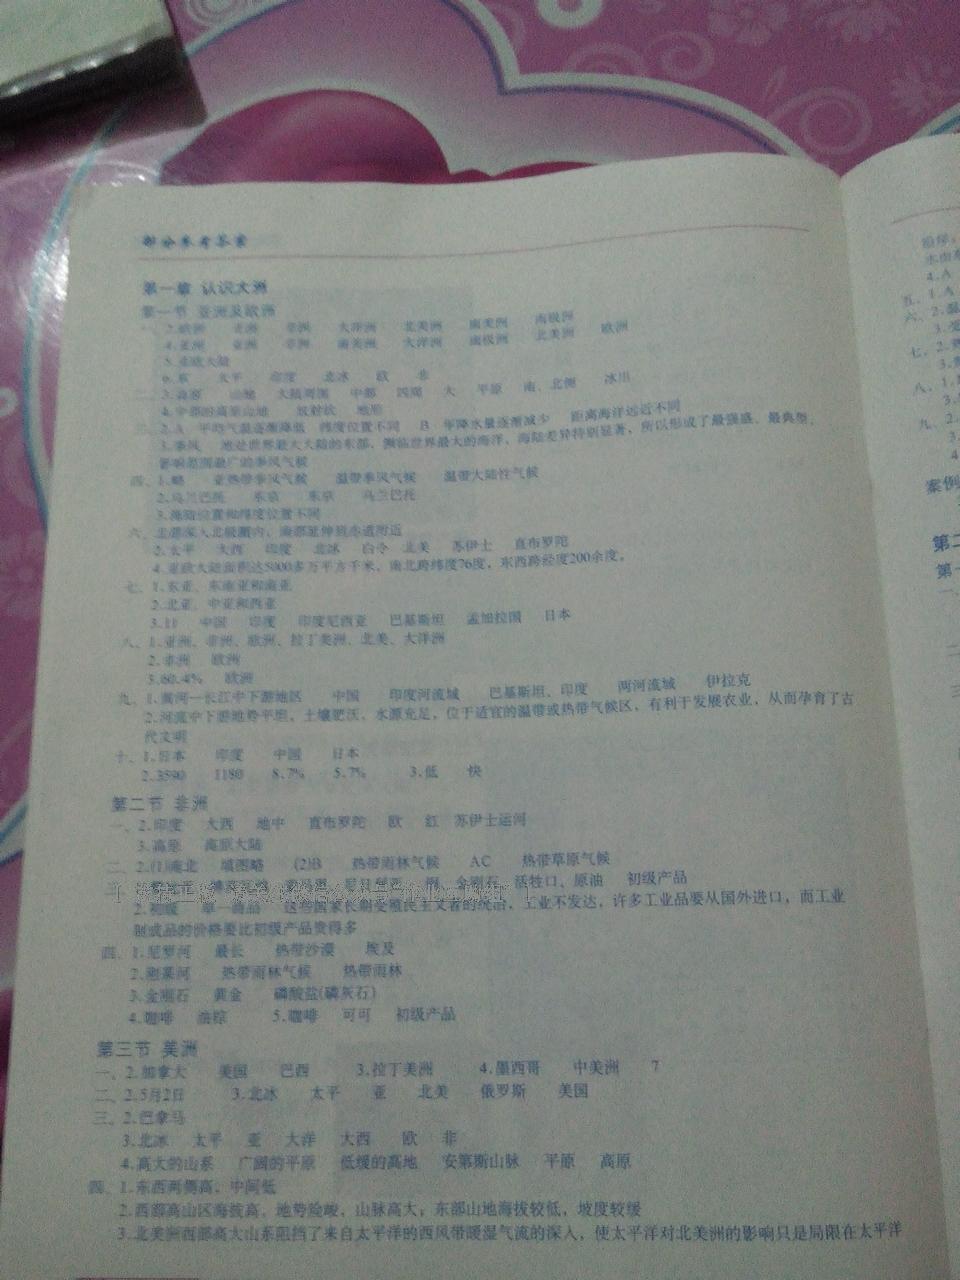 部分参考答案
第一章 认识大洲
第一节 亚洲及欧洲
一、2.欧洲 亚洲 非洲 大洋洲 北美洲 南美洲 南极洲
4.亚洲 亚洲 非洲 南美洲 大洋洲 南极洲 北美洲 欧洲
5.亚欧大陆
6.东 太平 印度 北冰 欧 非
二、3.高原 山地 大陆周围 中部 四周 大 平原 南、北侧 冰川
4.中部的高原山地 放射状 地形
三、2.A 平均气温逐渐降低 纬度位置不同 B 年降水量逐渐减少 距离海洋远近不同
3.季风 地处世界最大大陆的东部，濒临世界最大的海洋，海陆差异特别显著，所以形成了最强盛、最典型、
影响范围最广的季风气候
四、1.略 亚热带季风气候 温带季风气候 温带大陆性气候
2.乌兰巴托 东京 东京 乌兰巴托
3.海陆位置和纬度位置不同
六、北部深入北极圈内，南部延伸到赤道附近
2.太平 大西 印度 北冰 白令 北美 苏伊士 直布罗陀
4.亚欧大陆面积达5000多万平方千米，南北跨纬度76度，东西跨经度200余度。
七、1.东亚、东南亚和南亚
2.北亚、中亚和西亚
3.11 中国 印度 印度尼西亚 巴基斯坦 孟加拉国 日本
八、1.亚洲、非洲、欧洲、拉丁美洲、北美、大洋洲
2.非洲 欧洲
3.60.4% 欧洲
九、1.黄河—长江中下游地区 中国 印度河流域 巴基斯坦、印度 两河流域 伊拉克
2.河流中下游地势平坦，土壤肥沃，水源充足，位于适宜的温带或热带气候区，有利于发展农业，从而孕育了古
代文明
十、1.日本 印度 中国 日本
2.3590 1180 8.7% 5.7% 3.低 快
第二节 非洲
一、2.印度 大西 地中 直布罗陀 欧 红 苏伊士运河
3.高原 高原大陆
二、2.(1)南北 填图略 (2)B 热带雨林气候 AC 热带草原气候
三、 尼日利亚 铜 金刚石 活牲口、原油 初级产品
2.初级 单一商品 这些国家长期受殖民主义者的统治，工业不发达，许多工业品要从国外进口，而工业
制成品的价格要比初级产品贵得多
四、1.尼罗河 最长 热带沙漠 埃及
2.刚果河 热带雨林气候 热带雨林
3.金刚石 黄金 磷酸盐(磷灰石)
4.咖啡 油棕 5.咖啡 可可 初级产品
第三节 美洲
一、2.加拿大 美国 巴西 3.拉丁美洲 4.墨西哥 中美洲 7
二、2.5月2日 3.北冰 太平 亚 北美 俄罗斯 美国
三、2.巴拿马
3.北冰 太平 亚 大洋 大西 欧 非
4.高大的山系 广阔的平原 低缓的高地 安第斯山脉 平原 高原
四、1.东西两侧高，中间低
2.西部高山区海拔高，地势险峻，山脉高大；东部山地海拔较低，坡度较缓
3.北美洲西部高大山系阻挡了来自太平洋的西风带暖湿气流的深入，使太平洋对北美洲的影响只是局限在太平洋
4.A
五、1.A
案例